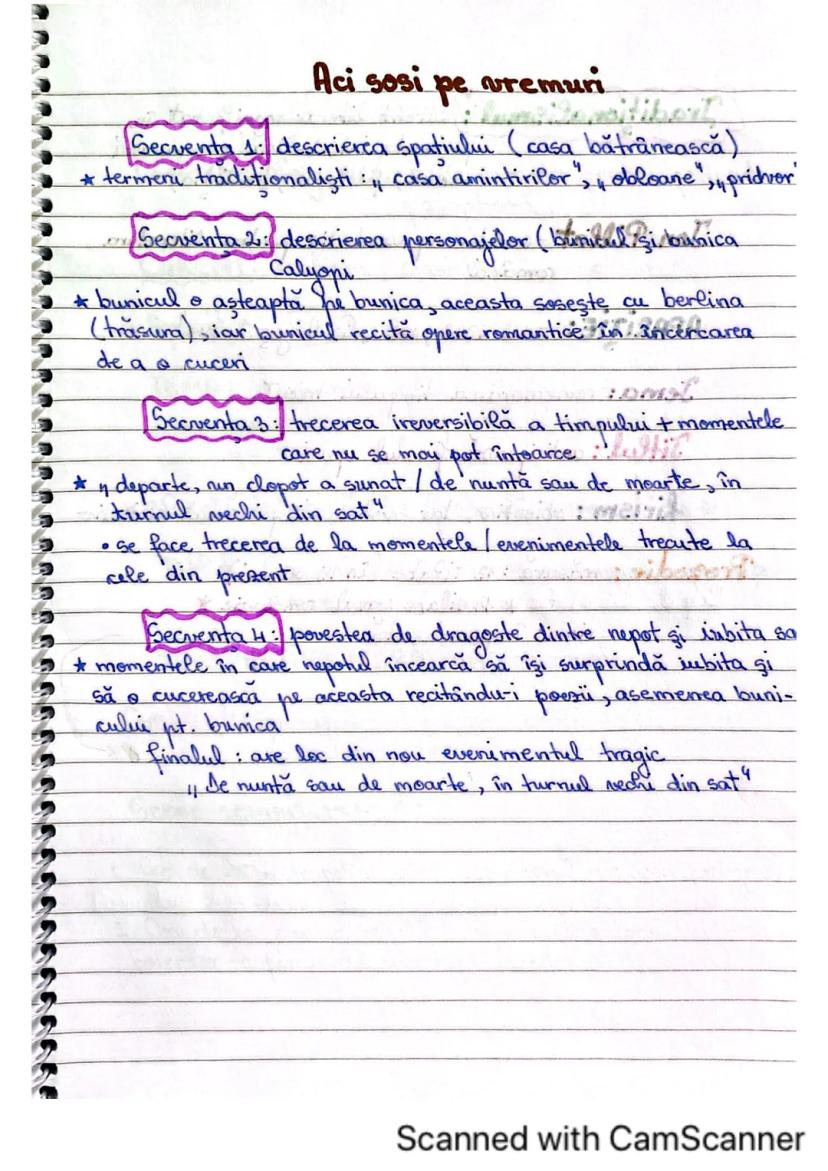 Aci sosi pe vremuri
Secvența 1: descrierea spațiului (casa bătrânească)
* termeni tradiționaliști: „casa amintirilor", „obloane", „pridvor"
Secvența 2: descrierea personajelor (bunicul și bunica
Calyopi
* bunicul o așteaptă pe bunica, aceasta sosește cu berlina
(trăsura), iar bunicul recită opere romantice în încercarea
de a o cuceri
Secvența 3: trecerea ireversibilă a timpului + momentele
care nu se mai pot întoarce
* „departe, un clopot a sunat / de nuntă sau de moarte, în
turnul vechi din sat"
• se face trecerea de la momentele / evenimentele trecute la
cele din prezent
Secvența 4: povestea de dragoste dintre nepot și iubita sa
* momentele în care nepotul încearcă să își surprindă iubita și
să o cucerească pe aceasta recitându-i poezii, asemenea buni-
cului pt. bunica
finalul: are loc din nou evenimentul tragic
„De nuntă sau de moarte, în turnul vechi din sat"
Scanned with CamScanner